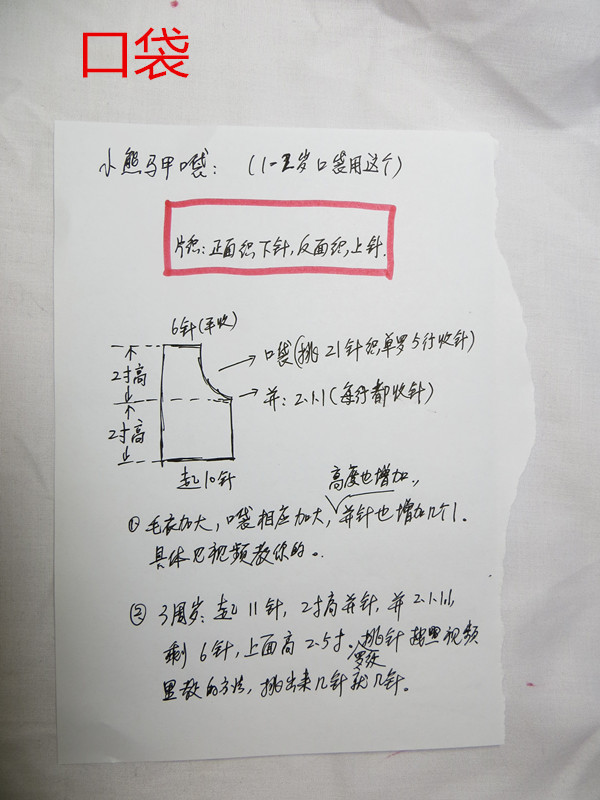 口袋
小熊马甲口袋：（1-2岁口袋用这个）
片织：正面织下针，反面织上针.
6针（平收）
口袋（挑21针织单罗5行收针）
2寸高
并：2.1.1（每行都收针）
2寸高
起10针
高度也增加.,
①毛衣加大，口袋相应加大，并针也增加几个1.
具体见视频教你的。.
②3周岁：起11针，2寸高并针，并2.1.1.1,
剩6针，上面高2.5寸.挑针按照视频
罗纹
里教的方法，挑出来几针就几针。